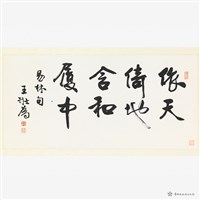 依天
倚地
含和
履中
易林句
王壯為